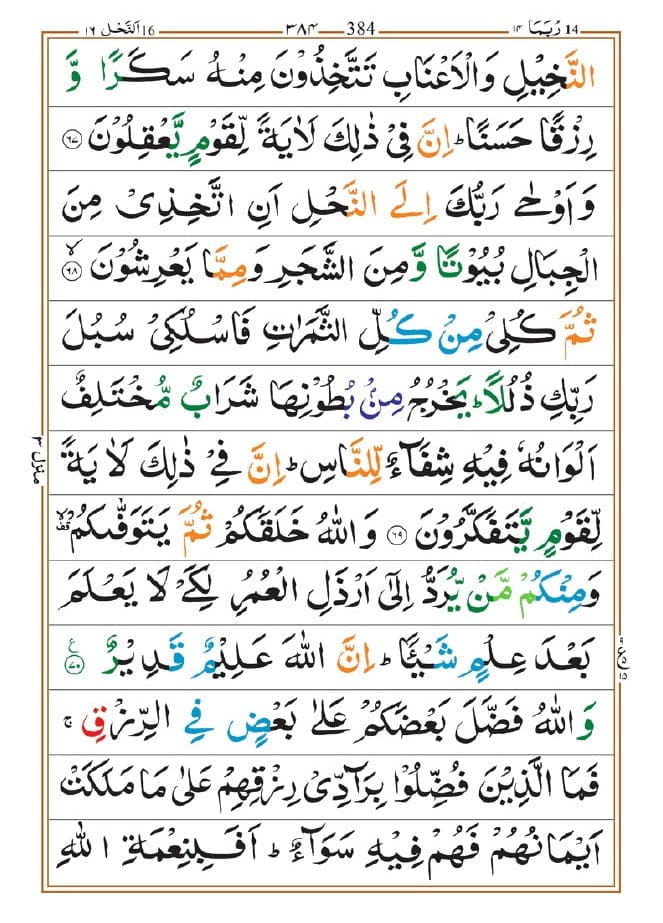 14 رُبَمَا ۱۴ 384 ۳۸۴ 16 اَلنَّحْل ۱۶
النَّخِيْلِ وَالْاَعْنَابِ تَتَّخِذُوْنَ مِنْهُ سَكَرًا وَّ
رِزْقًا حَسَنًا ؕ اِنَّ فِیْ ذٰلِكَ لَاٰيَةً لِّقَوْمٍ يَّعْقِلُوْنَ ﴿۶۷﴾
وَ اَوْحٰی رَبُّكَ اِلَی النَّحْلِ اَنِ اتَّخِذِیْ مِنَ
الْجِبَالِ بُيُوْتًا وَّ مِنَ الشَّجَرِ وَمِمَّا يَعْرِشُوْنَ ۙ﴿۶۸﴾
ثُمَّ كُلِیْ مِنْ كُلِّ الثَّمَرٰتِ فَاسْلُكِیْ سُبُلَ
رَبِّكِ ذُلُلًا ؕ يَخْرُجُ مِنْۢ بُطُوْنِهَا شَرَابٌ مُّخْتَلِفٌ
اَلْوَانُهٗ فِيْهِ شِفَآءٌ لِّلنَّاسِ ؕ اِنَّ فِیْ ذٰلِكَ لَاٰيَةً
لِّقَوْمٍ يَّتَفَكَّرُوْنَ ﴿۶۹﴾ وَاللّٰهُ خَلَقَكُمْ ثُمَّ يَتَوَفّٰىكُمْ
وَمِنْكُمْ مَّنْ يُّرَدُّ اِلٰٓی اَرْذَلِ الْعُمُرِ لِكَیْ لَا يَعْلَمَ
بَعْدَ عِلْمٍ شَيْئًا ؕ اِنَّ اللّٰهَ عَلِيْمٌ قَدِيْرٌ ﴿۷۰﴾ ع
وَاللّٰهُ فَضَّلَ بَعْضَكُمْ عَلٰی بَعْضٍ فِی الرِّزْقِ ۚ
فَمَا الَّذِيْنَ فُضِّلُوْا بِرَآدِّیْ رِزْقِهِمْ عَلٰی مَا مَلَكَتْ
اَيْمَانُهُمْ فَهُمْ فِيْهِ سَوَآءٌ ؕ اَفَبِنِعْمَةِ اللّٰهِ
منزل ۳